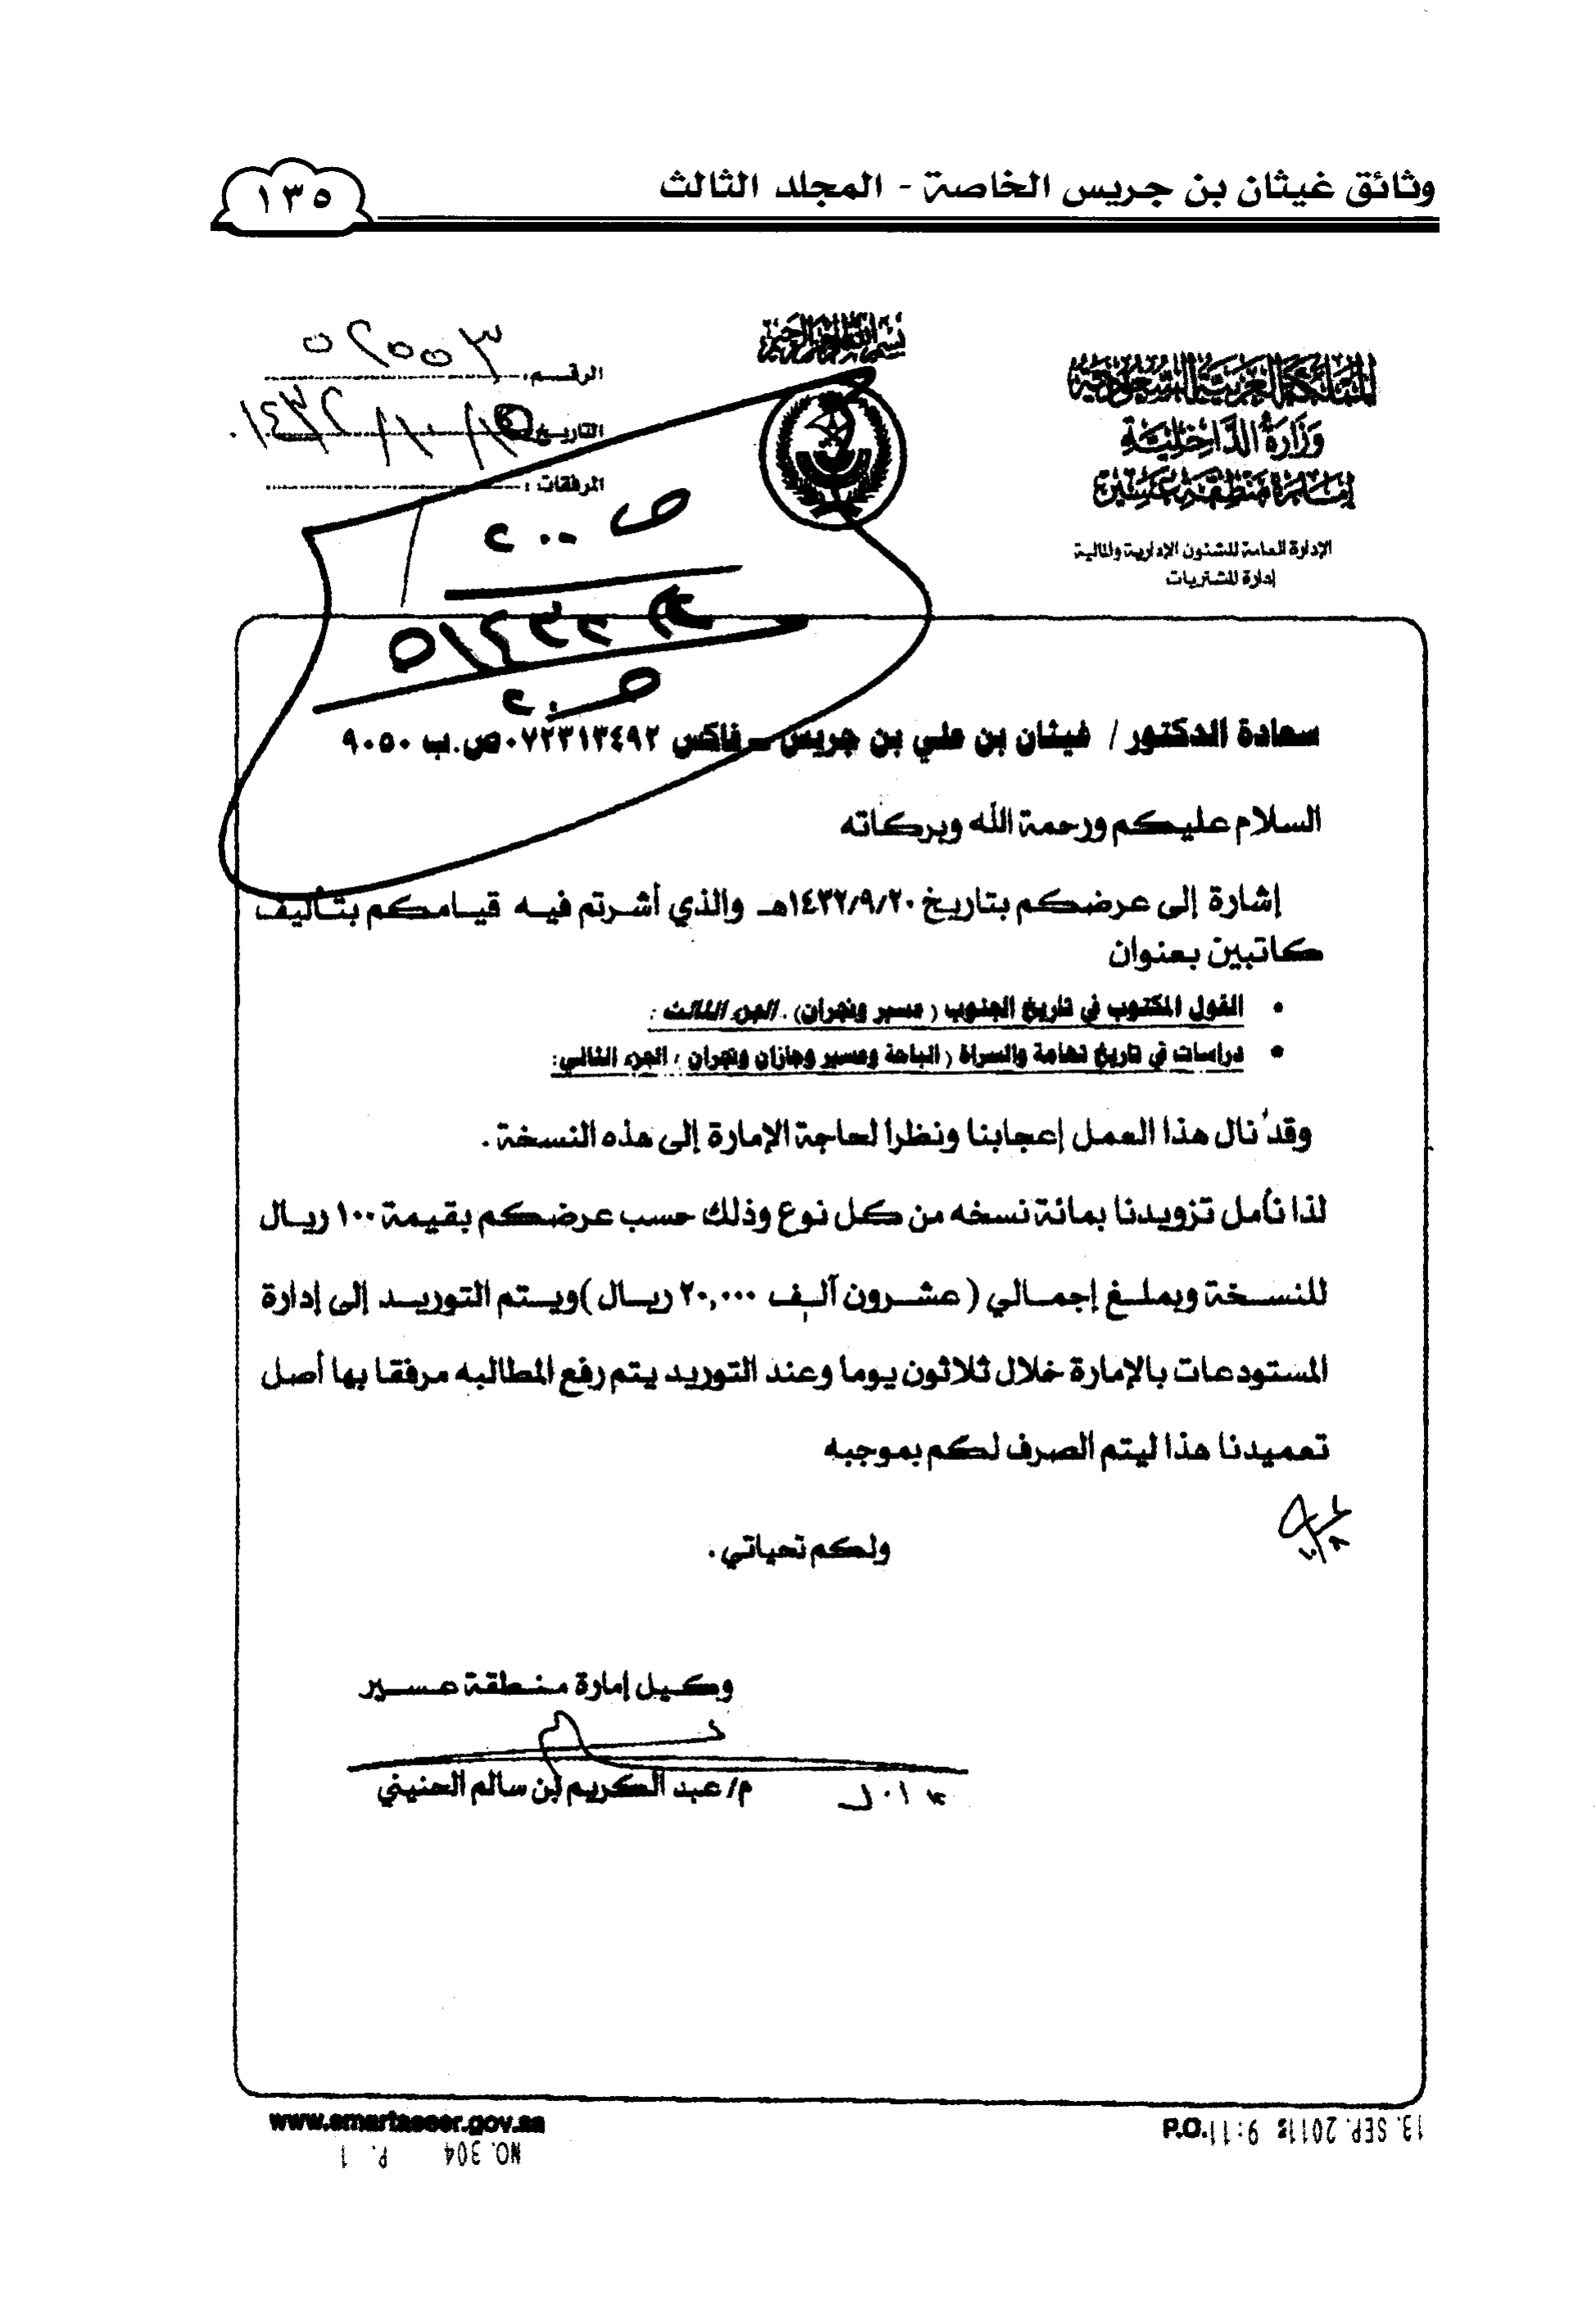 وثائق غيثان بن جريس الخاصة - المجلد الثالث
١٣٥
المملكة العربية السعودية
وزارة الداخلية
إمارة منطقة عسير
الإدارة العامة للشئون الإدارية والمالية
إدارة المشتريات
الرقـــم:
التاريخ:
المرفقات:
سعادة الدكتور / غيثان بن علي بن جريس - فاكس ٠٧٢٣١٣٤٩٢ ص.ب ٩٠٥٠
السلام عليكم ورحمة الله وبركاته
إشارة إلى عرضكم بتاريخ ١٤٣٢/٩/٢٠هـ والذي أشرتم فيه قيامكم بتأليف
كاتبين بعنوان
• القول المكتوب في تاريخ الجنوب ( عسير ونجران) . الجزء الثالث :
• دراسات في تاريخ تهامة والسراة ( الباحة وعسير وجازان ونجران ، الجزء الثاني:
وقد نال هذا العمل إعجابنا ونظرا لحاجة الإمارة إلى هذه النسخة .
لذا نأمل تزويدنا بمائة نسخه من كل نوع وذلك حسب عرضكم بقيمة ١٠٠ ريال
للنسخة وبملغ إجمالي ( عشرون آلف ٢٠,٠٠٠ ريال )ويتم التوريد إلى إدارة
المستودعات بالإمارة خلال ثلاثون يوما وعند التوريد يتم رفع المطالبه مرفقا بها أصل
تعميدنا هذا ليتم الصرف لكم بموجبه
ولكم تحياتي .
وكيل إمارة منطقة عسير
م/ عبد الكريم بن سالم الحنيني
www.emartaseer.gov.sa
P.O.
13. SEP. 2011 9:11
NO. 304 P. 1